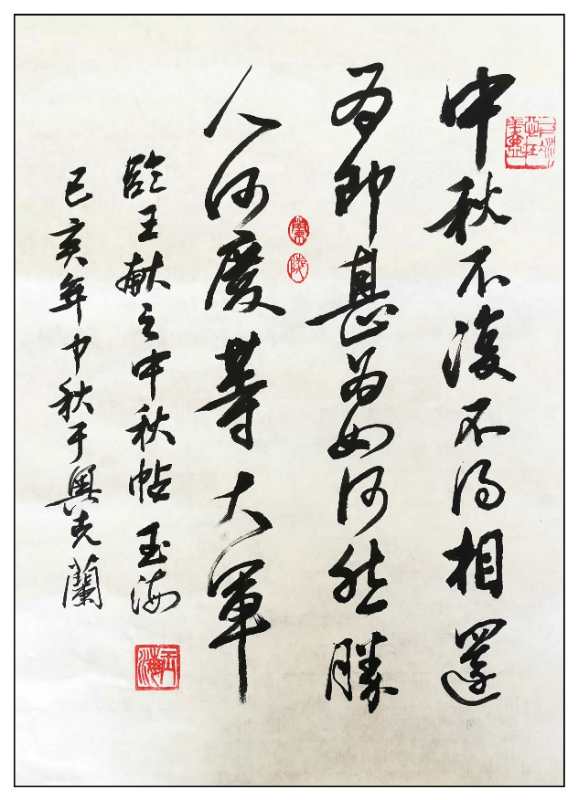 中秋不復不得相還
为即甚为如何然勝
人何慶等大軍
臨王献之中秋帖 玉海
己亥年中秋于奥克蘭
玉海